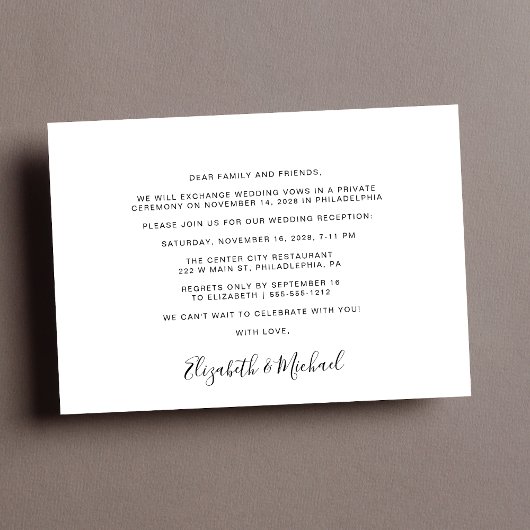 DEAR FAMILY AND FRIENDS,
WE WILL EXCHANGE WEDDING VOWS IN A PRIVATE
CEREMONY ON NOVEMBER 14, 2028 IN PHILADELPHIA
PLEASE JOIN US FOR OUR WEDDING RECEPTION:
SATURDAY, NOVEMBER 16, 2028, 7-11 PM
THE CENTER CITY RESTAURANT
222 W MAIN ST, PHILADLEPHIA, PA
REGRETS ONLY BY SEPTEMBER 16
TO ELIZABETH | 555-555-1212
WE CAN'T WAIT TO CELEBRATE WITH YOU!
WITH LOVE,
Elizabeth & Michael